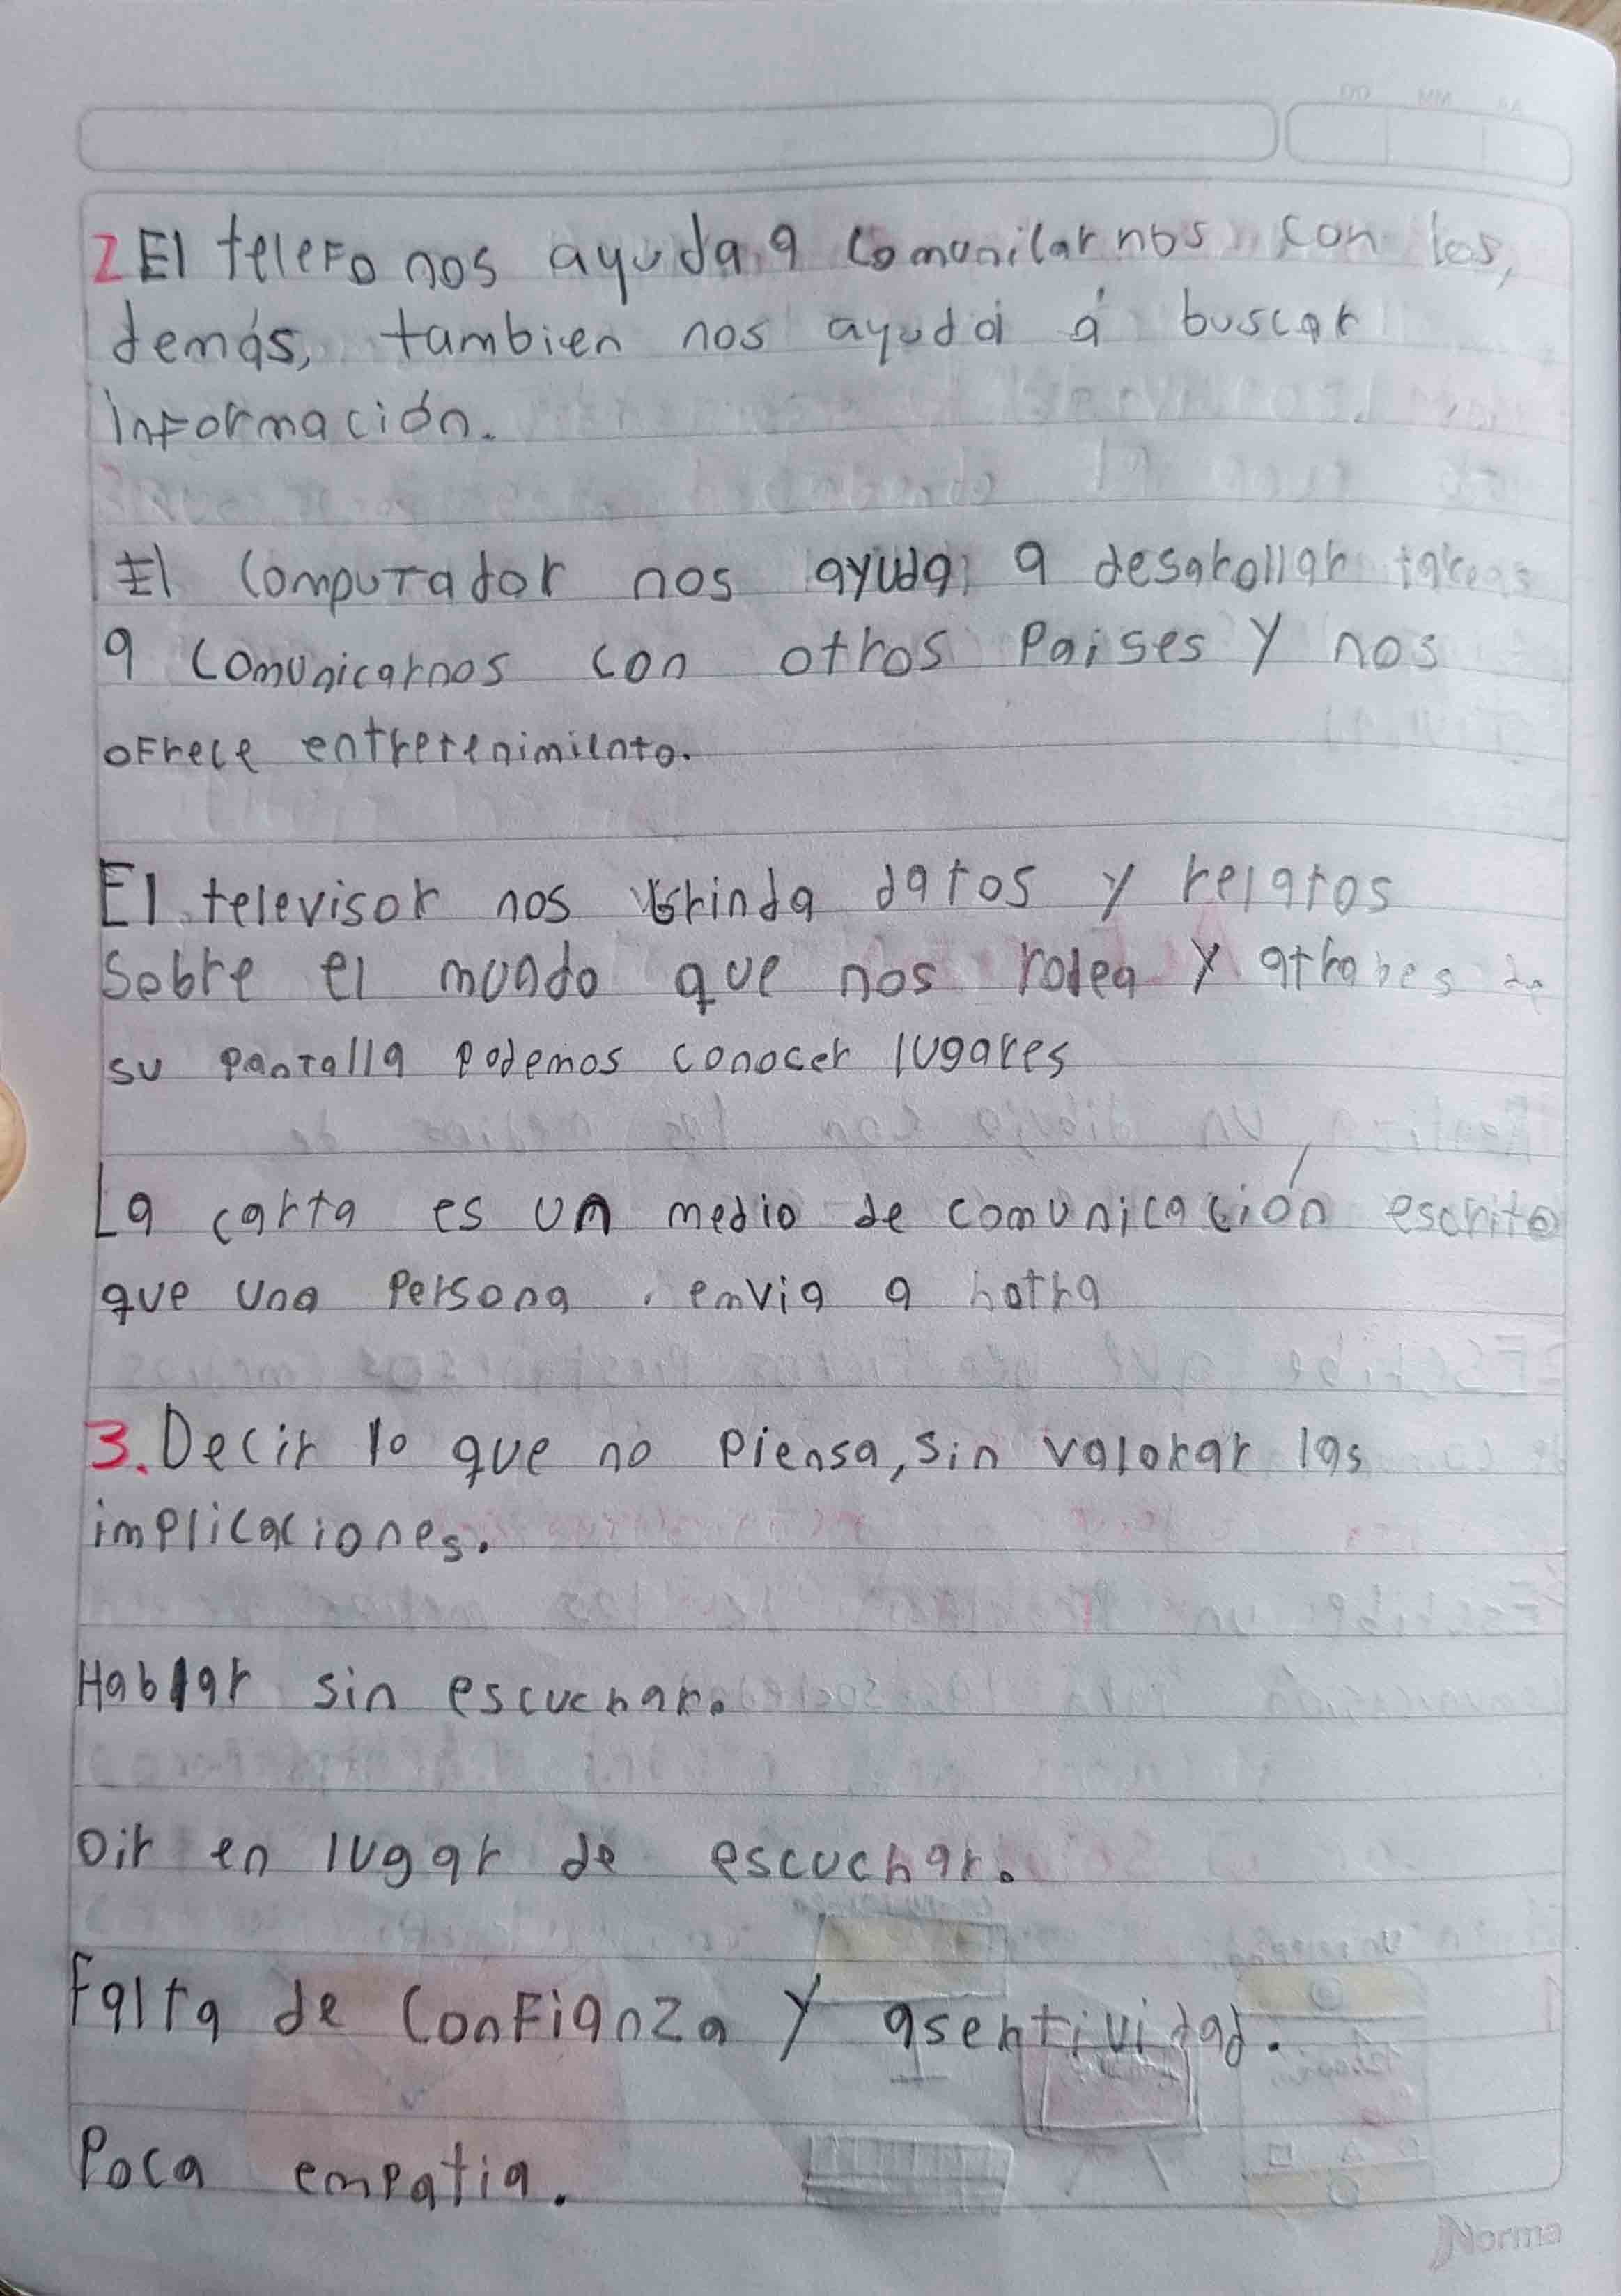 2 El telefo nos ayuda a comunicarnos con los,
demás, tambien nos ayuda á buscar
información.
El computador nos ayuda a desarollar tareas
a comunicarnos con otros Paises y nos
ofrece entretenimiento.
El televisor nos brinda datos y relatos
Sobre el mundo que nos rodea y atrabes de
su pantalla podemos conocer lugares
La carta es un medio de comunicación escrito
que una Persona envia a hotra
3. Decir lo que no piensa, sin valorar las
implicaciones.
Hablar sin escuchar.
Oir en lugar de escuchar.
Falta de confianza y asertividad.
Poca empatia.
Norma